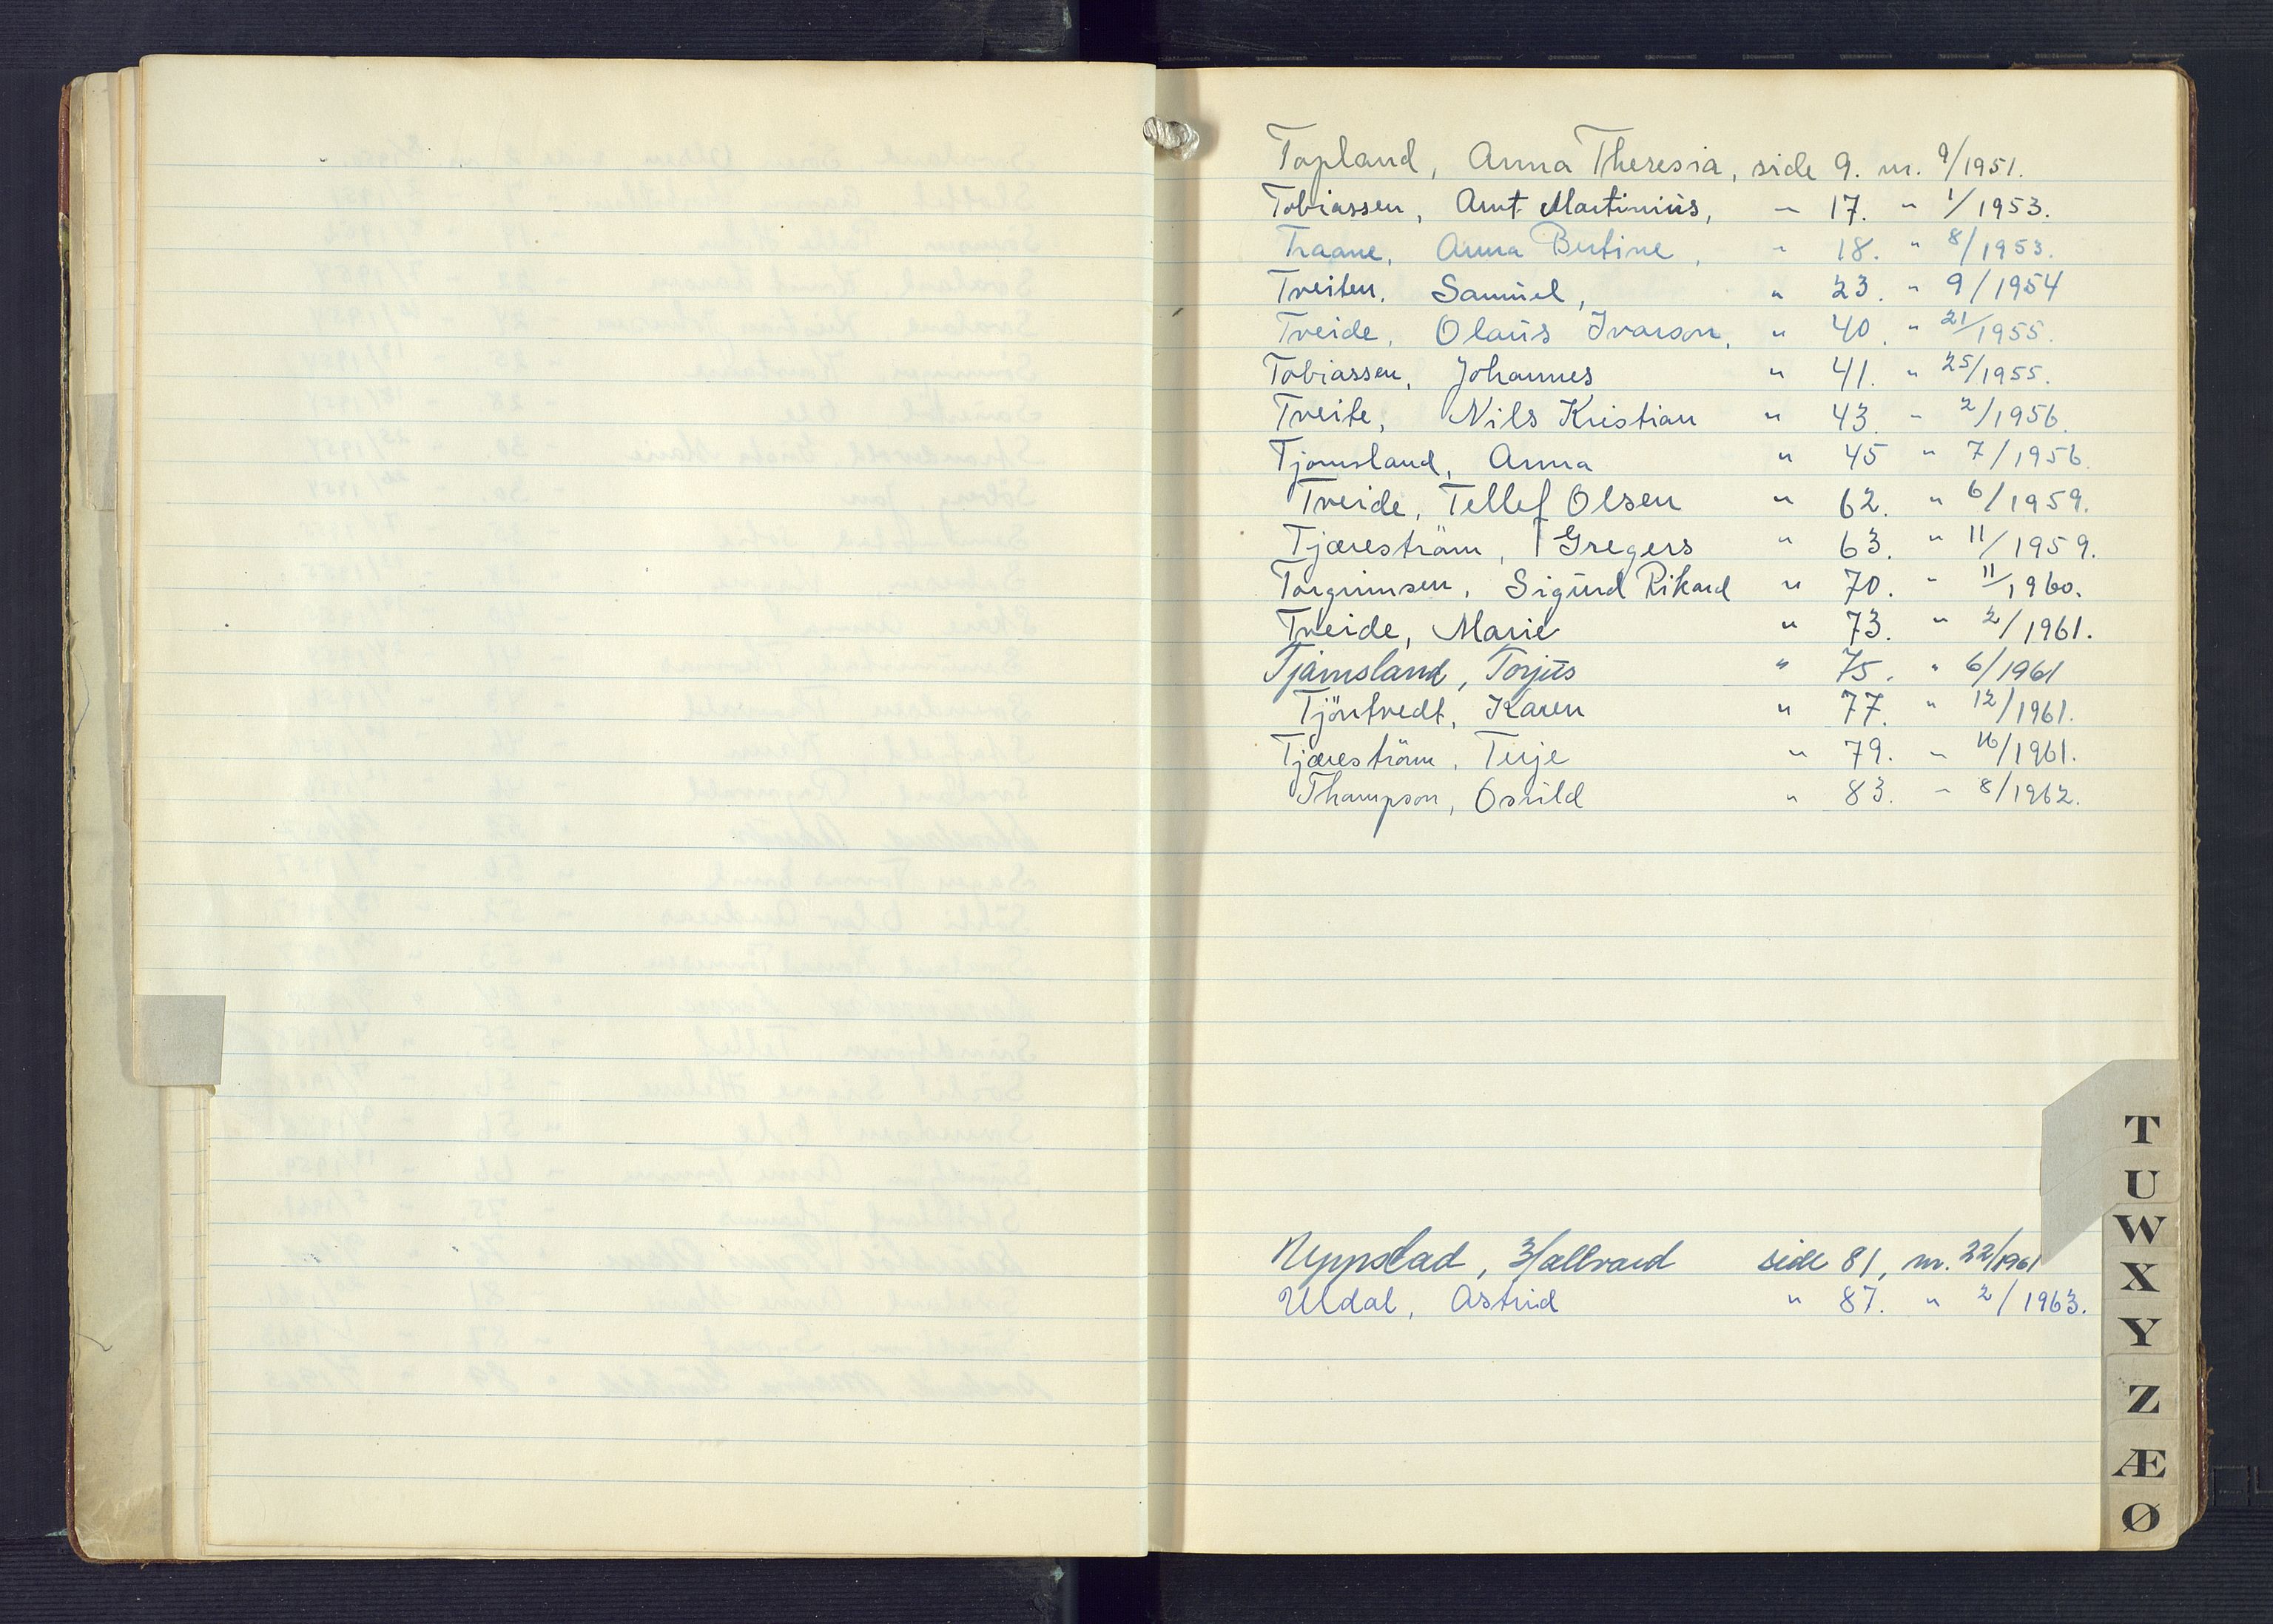 Topland, Anna Theresia, side 9. nr. 9/1951.
Tobiassen, Arnt Martinius, " 17. " 1/1953.
Traane, Anna Bertine, " 18. " 8/1953.
Treiten, Samuel, " 23. " 9/1954
Treide, Olaus Ivarson, " 40. " 21/1955.
Tobiassen, Johannes " 41. " 25/1955.
Treite, Nils Kristian " 43. " 2/1956.
Tjomsland, Anna " 45 " 7/1956.
Treide, Tellef Olsen " 62. " 6/1959.
Tjæreström, Gregers " 63. " 11/1959.
Torgrimsen, Sigurd Rikard " 70. " 11/1960.
Treide, Marie " 73. " 2/1961.
Tjåmsland, Torjus " 75. " 6/1961
Tjöntvedt, Karen " 77. " 12/1961.
Tjæreström, Terje " 79. " 16/1961.
Thompson, Osvild " 83. " 8/1962.
Uppstad, Hallvard side 81, nr. 22/1961
Uldal, Astrid " 87. " 2/1963.
T
U
W
X
Y
Z
Æ
Ø